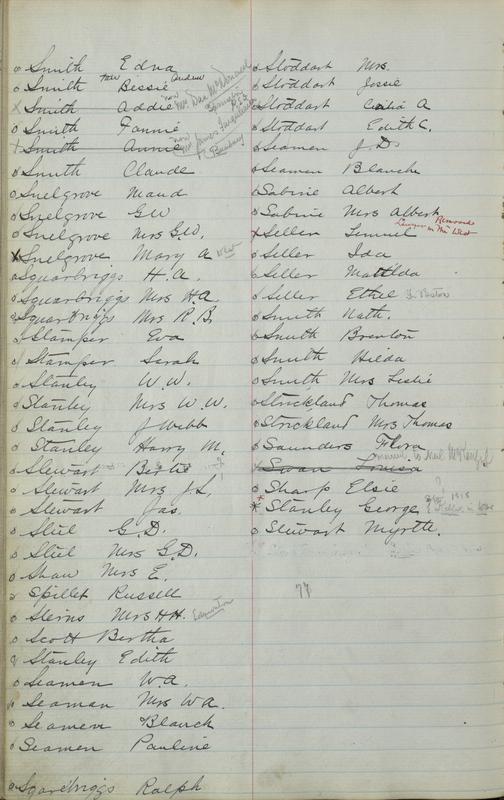 Smith Edna
Smith Bessie Andrew
Smith Addie now Mrs Dan McDonald
Smith Fannie
Smith Annie now Mrs James
Smith Claude
Snelgrove Maud
Snelgrove GW
Snelgrove Mrs G.W.
x Snelgrove Mary A West
Squarbriggs H.A.
Squarbriggs Mrs H.A.
Squarbriggs Mrs R.B.
Stamper Eva
Stamper Sarah
Stanley W.W.
Stanley Mrs W.W.
Stanley J Webb
Stanley Harry M.
Stewart
Stewart Mrs J.L.
Stewart Jas.
Stiel G.D.
Stiel Mrs G.D.
Shaw Mrs E.
Spillet Russell
Sterns Mrs HH. Edmonton
Scott Bertha
Stanley Edith
Seamen W.A.
Seaman Mrs W A.
Seamen Blanch
Seamen Pauline
Squarebriggs Ralph
Stoddart Mrs.
Stoddart Jessie
Stoddart Celia A
Stoddart Edith C.
Seamen J.D.
Seamen Blanche
Sabine Albert
Sabine Mrs Albert
x Seller Lemuel Removed Lawyer in the West
Seller Ida
Seller Matilda
Seller Ethel Boston
Smith Nath.
Smith Brenton
Smith Hilda
Smith Mrs Leslie
Strickland Thomas
Strickland Mrs Thomas
Saunders Flora
x Swan Louisa married to Neil
Sharp Elsie
x Stanley George 1918 Killed in War
Stewart Myrtle.
77